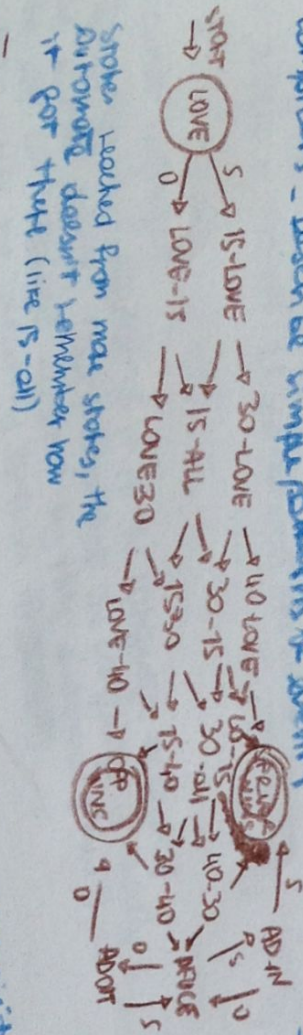 START
LOVE
S
O
15-LOVE
LOVE-15
30-LOVE
15-ALL
LOVE 30
40 LOVE
30-15
15-30
LOVE-40
40-15
30-all
15-40
40-30
30-40
OPP
WINS
DEUCE
AD IN
S
S
O
O
S
ADOUT
O
States reached from more states, the
automata doesn't remember how
it got there (like 15-all)